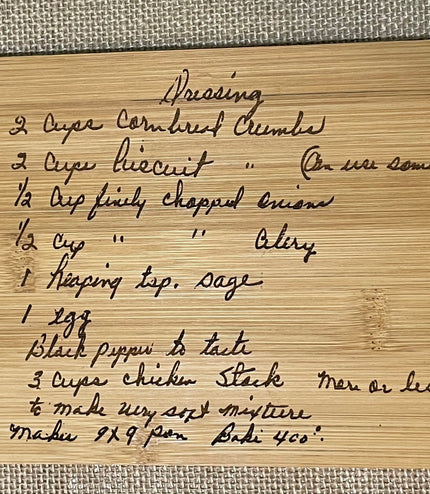 Dressing
2 Cups Cornbread Crumbs
2 Cups Biscuit " (Can use som
1/2 Cup finely chopped onions
1/2 Cup " " Celery
1 heaping tsp. sage
1 egg
Black pepper to taste
3 Cups chicken Stock More or le
to make very soft mixture
Makes 9x9 pan Bake 400°.